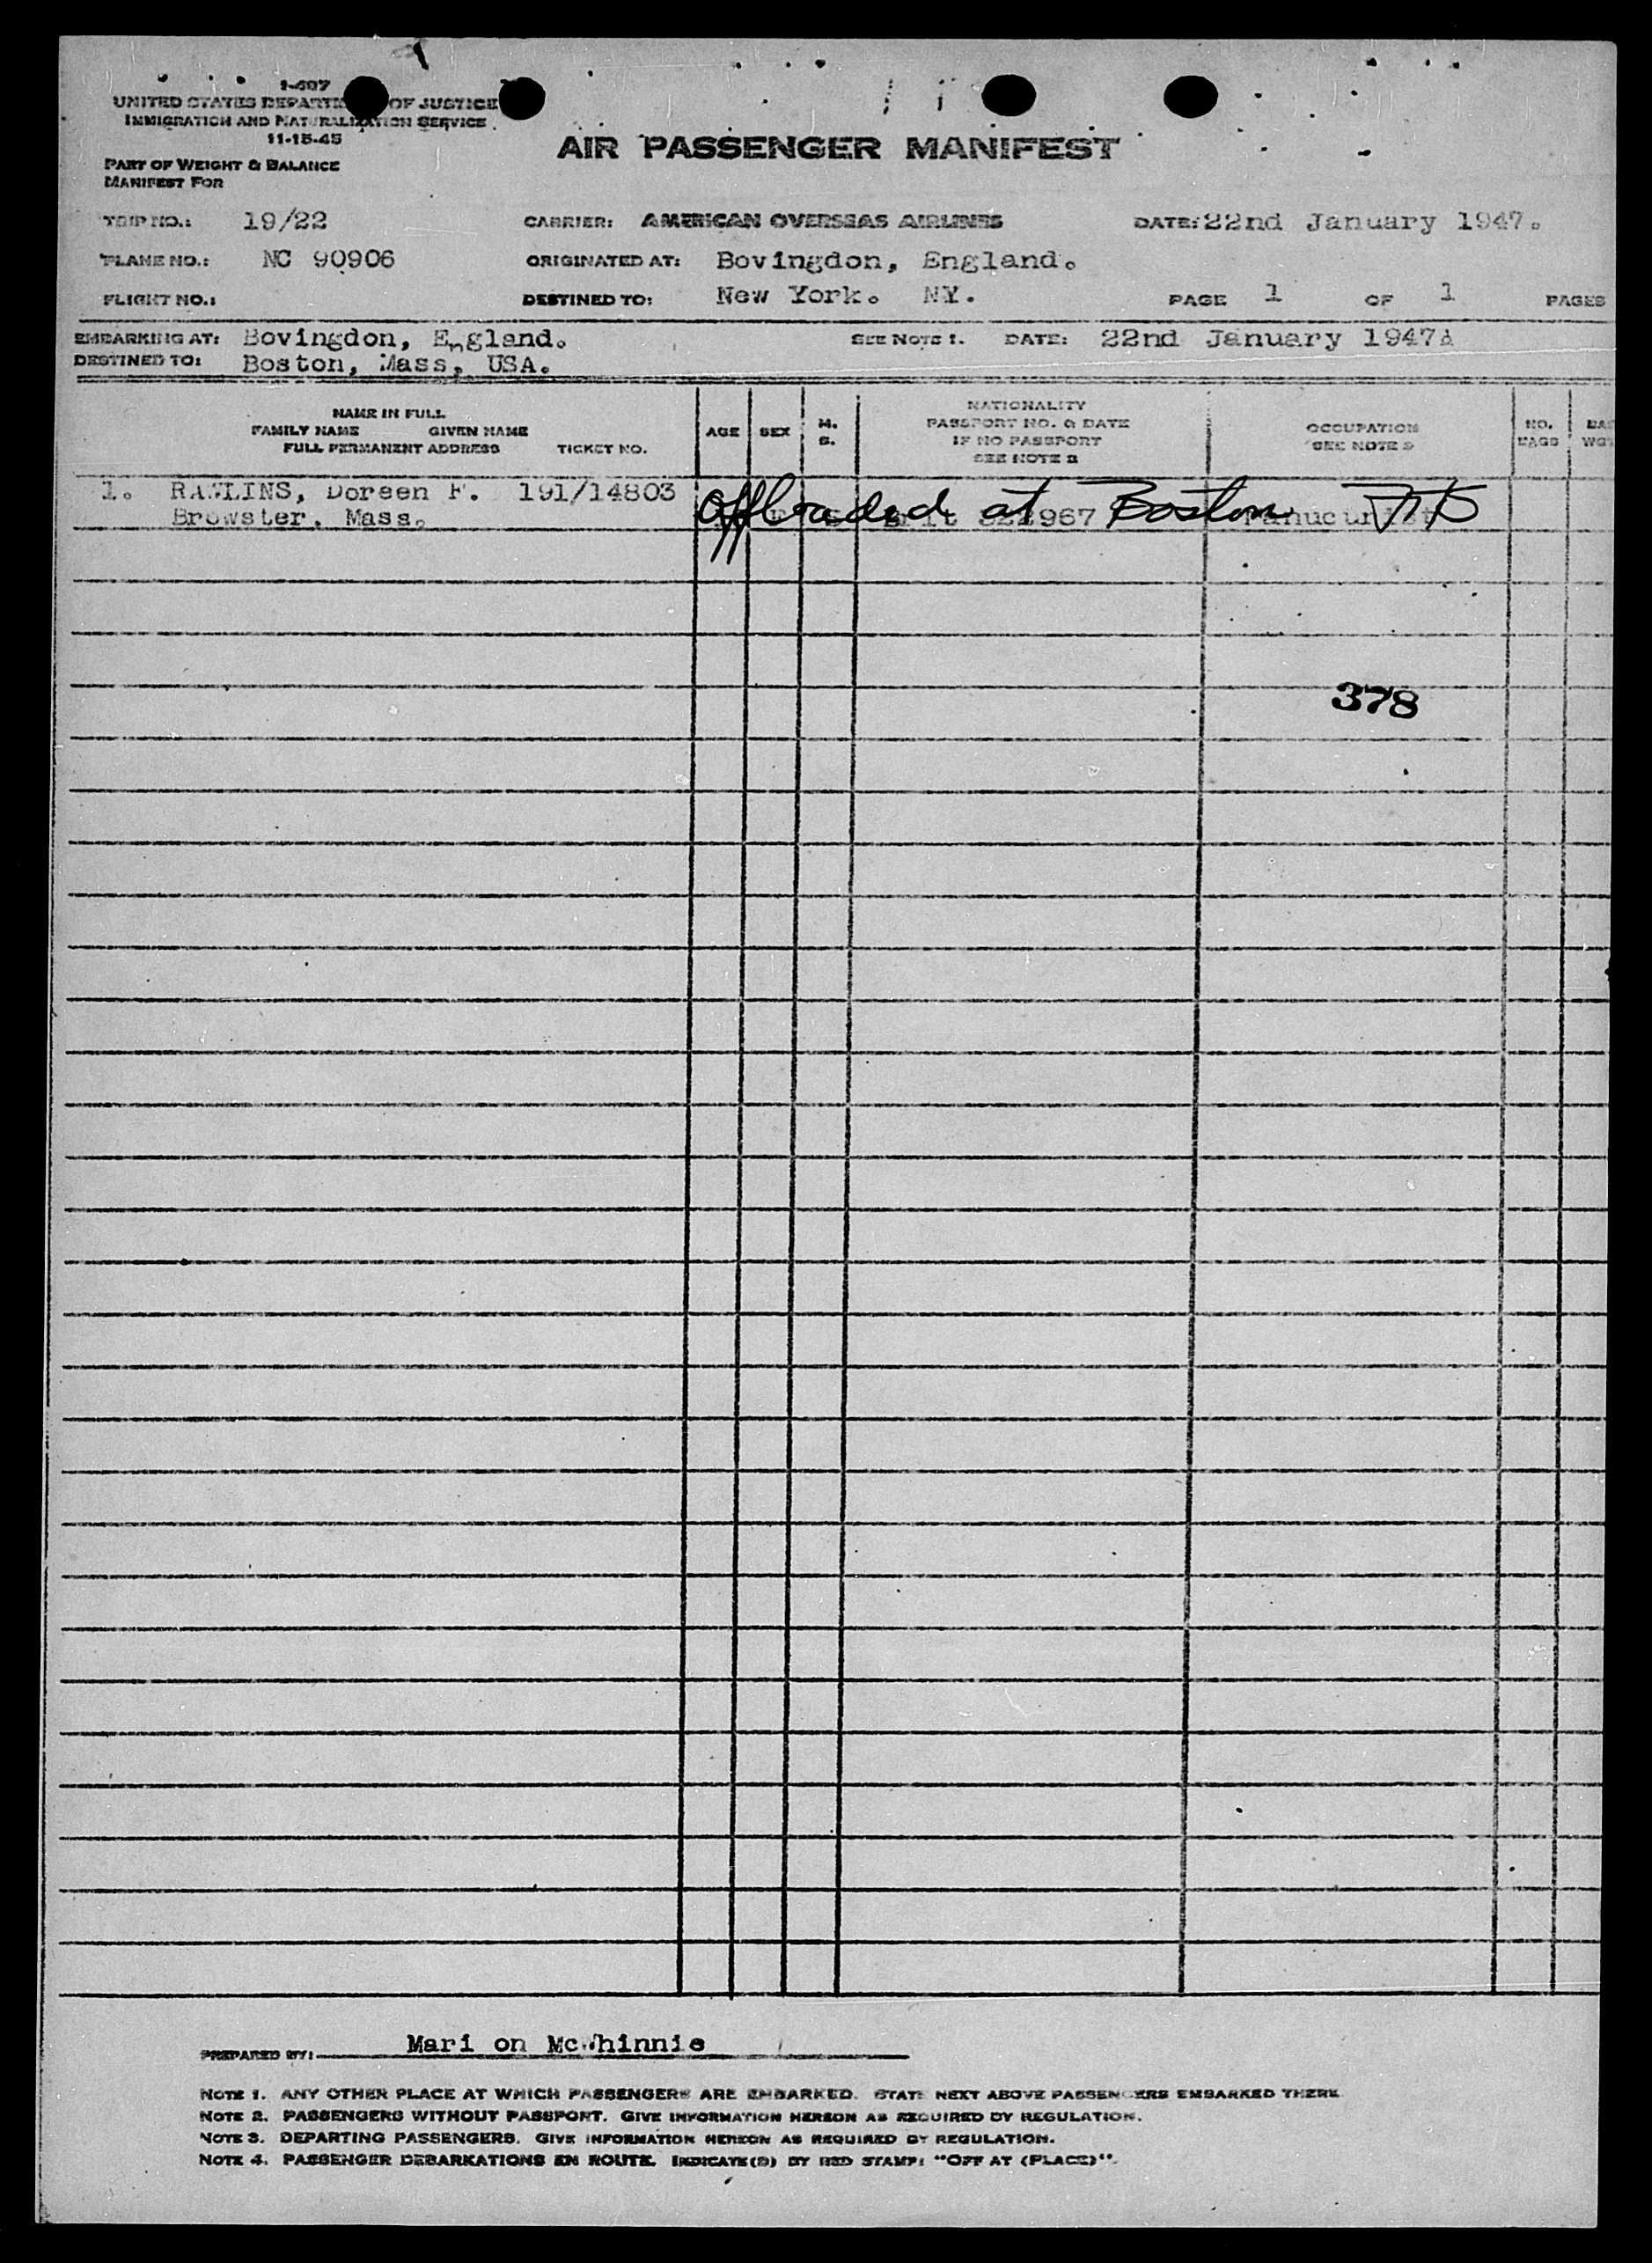 I-607
UNITED STATES DEPARTMENT OF JUSTICE
IMMIGRATION AND NATURALIZATION SERVICE
11-15-45
AIR PASSENGER MANIFEST
PART OF WEIGHT & BALANCE
MANIFEST FOR
TRIP NO.: 19/22 CARRIER: AMERICAN OVERSEAS AIRLINES DATE: 22nd January 1947.
PLANE NO.: NC 90906 ORIGINATED AT: Bovingdon, England.
FLIGHT NO.: DESTINED TO: New York. NY. PAGE 1 OF 1 PAGES
EMBARKING AT: Bovingdon, England. SEE NOTE 1. DATE: 22nd January 1947
DESTINED TO: Boston, Mass, USA.
NAME IN FULL
FAMILY NAME GIVEN NAME
FULL PERMANENT ADDRESS TICKET NO.
AGE SEX M. S.
NATIONALITY
PASSPORT NO. & DATE
IF NO PASSPORT
SEE NOTE 2
OCCUPATION
SEE NOTE 3
NO. BAGS
1. RAWLINS, Doreen F. 191/14803
Browster, Mass.
Offloaded at Boston
378
PREPARED BY: Mari on McWhinnie
NOTE 1. ANY OTHER PLACE AT WHICH PASSENGERS ARE EMBARKED. STATE NEXT ABOVE PASSENGERS EMBARKED THERE.
NOTE 2. PASSENGERS WITHOUT PASSPORT. GIVE INFORMATION HEREON AS REQUIRED BY REGULATION.
NOTE 3. DEPARTING PASSENGERS. GIVE INFORMATION HEREON AS REQUIRED BY REGULATION.
NOTE 4. PASSENGER DEBARKATIONS EN ROUTE. INDICATE(D) BY RED STAMP: "OFF AT (PLACE)".